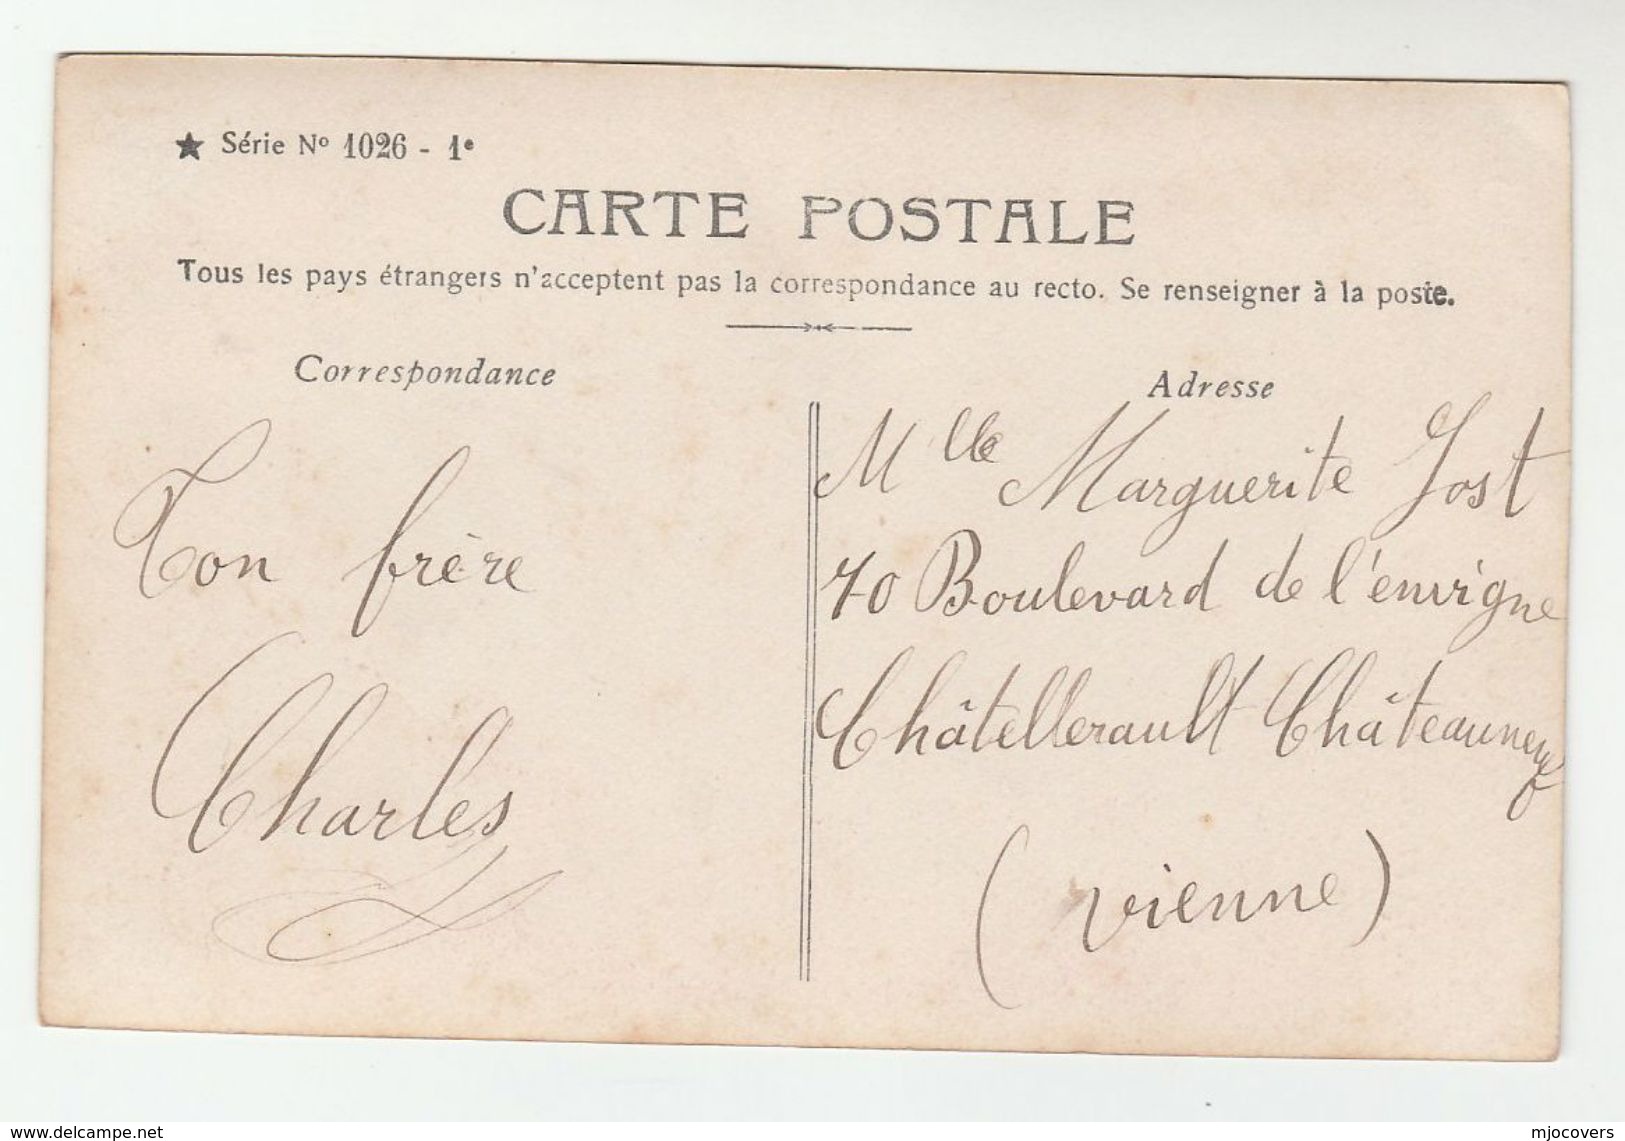 ★ Série Nº 1026 - 1e
CARTE POSTALE
Tous les pays étrangers n'acceptent pas la correspondance au recto. Se renseigner à la poste.
Correspondance
Ton frère
Charles
Adresse
Mlle Marguerite Jost
70 Boulevard de l'envigne
Châtellerault Châteauneuf
(vienne)
www.delcampe.net
mjocovers